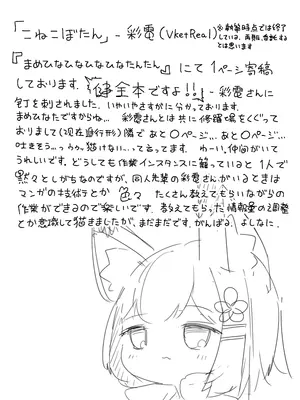 「こねこぼたん」- 彩雫 (VketReal)
※執筆時点では終了
している。再販、委託する
とは思います
『まめひなひなひなひなたんたん』にて1ページ寄稿
しております。健全本ですよ!!! - 彩雫さんに
釘を刺されました。いやいやさすがに分かっております。
まめひなたですからね… 彩雫さんとは共に修羅場をくぐって
おりまして(現在進行形)隣であと〇ページ…あと〇ページ…
吐きそう…っうっ。猫けない…って言ってます。わーい、仲間がいて
うれしいです。どうしても作業インスタンスに籠っていると1人で
黙々としがちなのですが、同人先輩の彩雫さんがいるときは
マンガの技術とか色々たくさん教えてもらいながらの
作業ができるので楽しいです。教えてもらった情報量の2階調
とか意識して描きましたが、まだまだです。がんばる。よしなに。